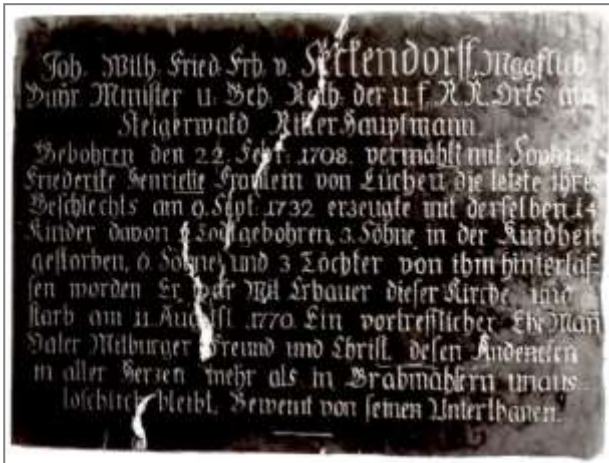 Joh. Wilh. Fried. Frh. v. Seckendorff, Mggflich
Minister u. Geh. Rath. der u. f. R. R. Orts am
Steigerwald Ritter Hauptmann
Gebohren den 22. Sept. 1708. vermählt mit Sophie
Friederike Henriette Fräulein von Lüchen die letzte ihres
Geschlechts am 9. Sept. 1732 erzeugte mit derselben 14
Kinder davon Todtgebohren, 3. Söhne in der Kindheit
gestorben, 6 Söhne und 3 Töchter von ihm hinterlas-
sen worden Er war Mit Erbauer dieser Kirche und
starb am 11. August 1770. Ein vortrefflicher Ehe Mañ
Vater Mitburger Freund und Christ, desen Andencken
in aller Herzen mehr als in Grabmählern unaus-
löschlich bleibt. Beweint von seinen Unterthanen.